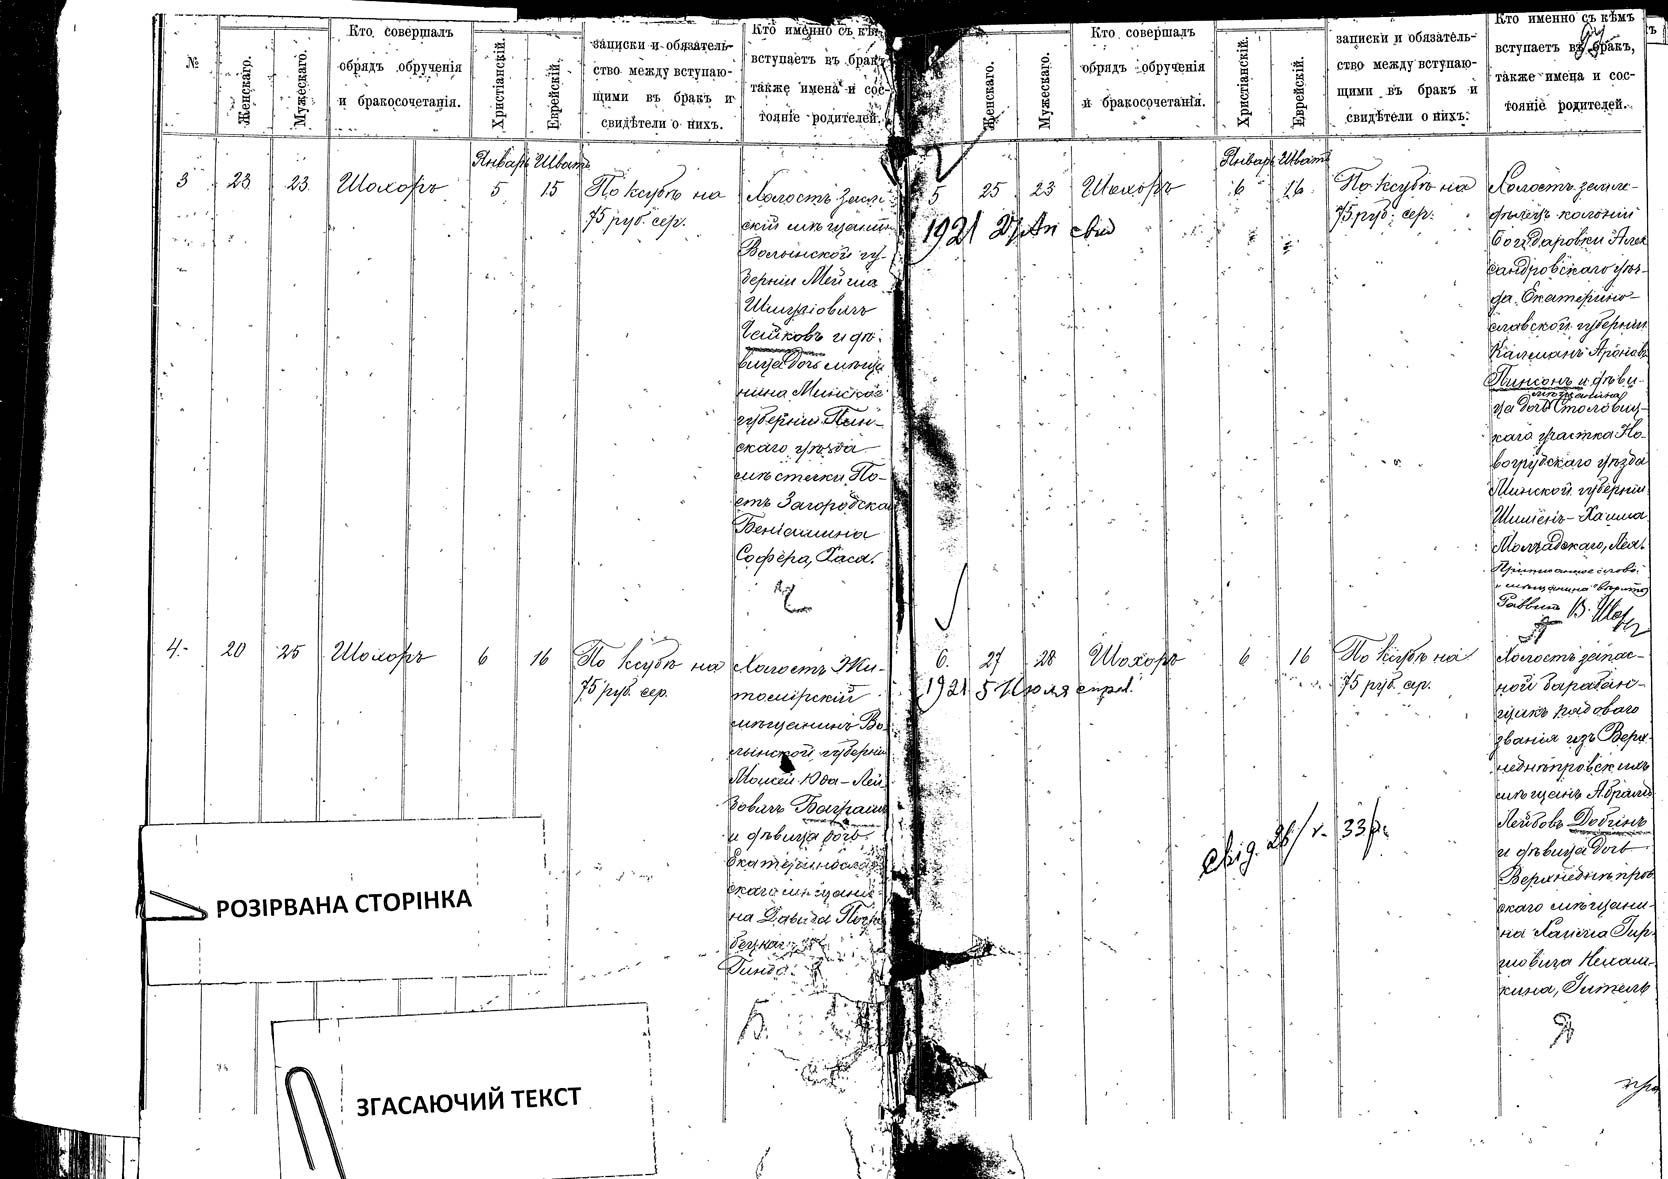 №
Женскаго.
Мужескаго.
Кто совершалъ
обрядъ обрученія
и бракосочетанія.
Христіанскій.
Еврейскій.
записки и обязатель-
ство между вступаю-
щими въ бракъ и
свидѣтели о нихъ.
Кто именно съ
вступаетъ въ бракъ
также имена и сос-
тояніе родителей.
3
23
23
Шохоръ
Январь
5
Шватъ
15
По ксубѣ на
75 руб. сер.
Холостъ
скій мѣщанинъ
Волынской гу-
берніи Мейша
Шмуіовичъ
и дѣ-
вица дочь мѣща
нина Минской
губерніи Пин-
скаго уѣзда
мѣстечки По-
стъ Загородска
Беніамина
Софера, Хася.
4
20
25
Шохоръ
6
16
По ксубѣ на
75 руб. сер.
Холостъ Жи-
томирскій
мѣщанинъ Во-
лынской губерніи
Мойсей Юда-Лей-
зовичъ
и дѣвица дочь
Екатеринослав
скаго мѣщани-
на Давида
Гинда.
РОЗІРВАНА СТОРІНКА
ЗГАСАЮЧИЙ ТЕКСТ
Женскаго.
Мужескаго.
Кто совершалъ
обрядъ обрученія
и бракосочетанія.
Христіанскій.
Еврейскій.
записки и обязатель-
ство между вступаю-
щими въ бракъ и
свидѣтели о нихъ.
Кто именно съ кѣмъ
вступаетъ въ бракъ,
также имена и сос-
тояніе родителей.
5
25
23
Шохоръ
Январь
6
Шватъ
16
По ксубѣ на
75 руб. сер.
1921 27
Холостъ земле-
дѣлецъ колоніи
Богодаровки Алек
сандровскаго уѣз-
да Екатерино-
славской губерніи
Калманъ Ароновъ
Пинсонъ и дѣви-
мѣщанина
ца дочь Столовиц-
каго участка Но-
вогрудскаго уѣзда
Минской губерніи
Шимень-Хаима
Молчадскаго, Лея.
Приписанное слово
"мѣщанина" вѣрно
Раввинъ В. Шохоръ
6.
27
28
Шохоръ
6
16
По ксубѣ на
75 руб. сер.
1921 5 Июля
Холостъ запас-
ной барабан-
щикъ рядоваго
званія изъ Верх-
неднѣпровскихъ
мѣщанъ Абрамъ
Лейбовъ Добинъ
и дѣвица дочь
Верхнеднѣпров
скаго мѣщани-
на Хаима Гир-
шовича Нехам-
кина, Гитель